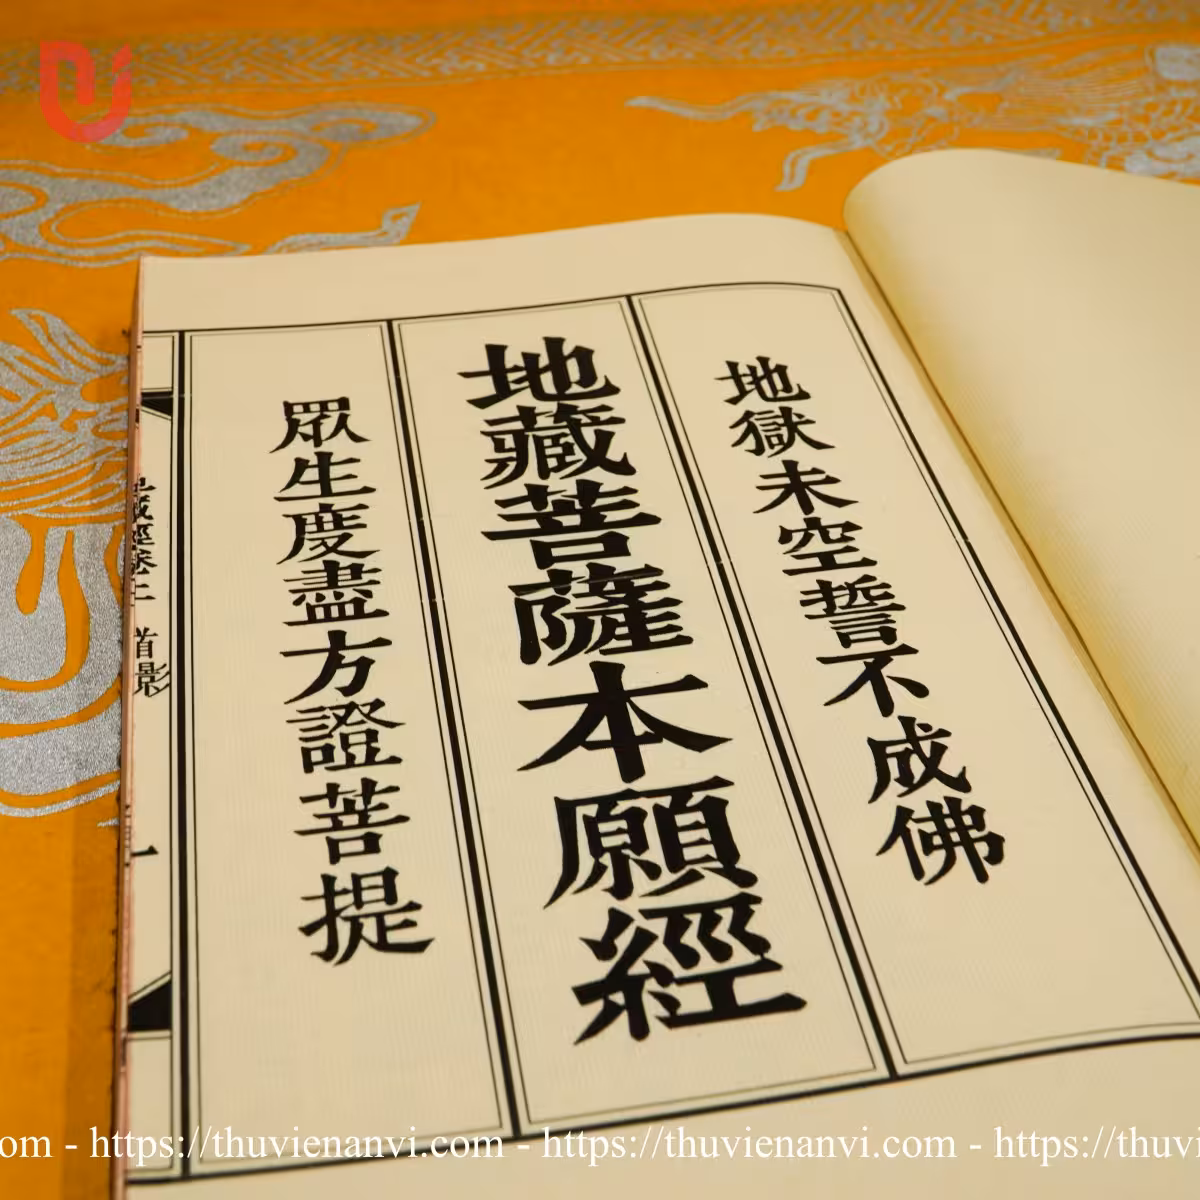 地獄未空誓不成佛
地藏菩薩本願經
眾生度盡方證菩提
藏經卷上 首影
一
om - https://thuvienanvi.com - https://thuvienanvi.com - https://thuvi